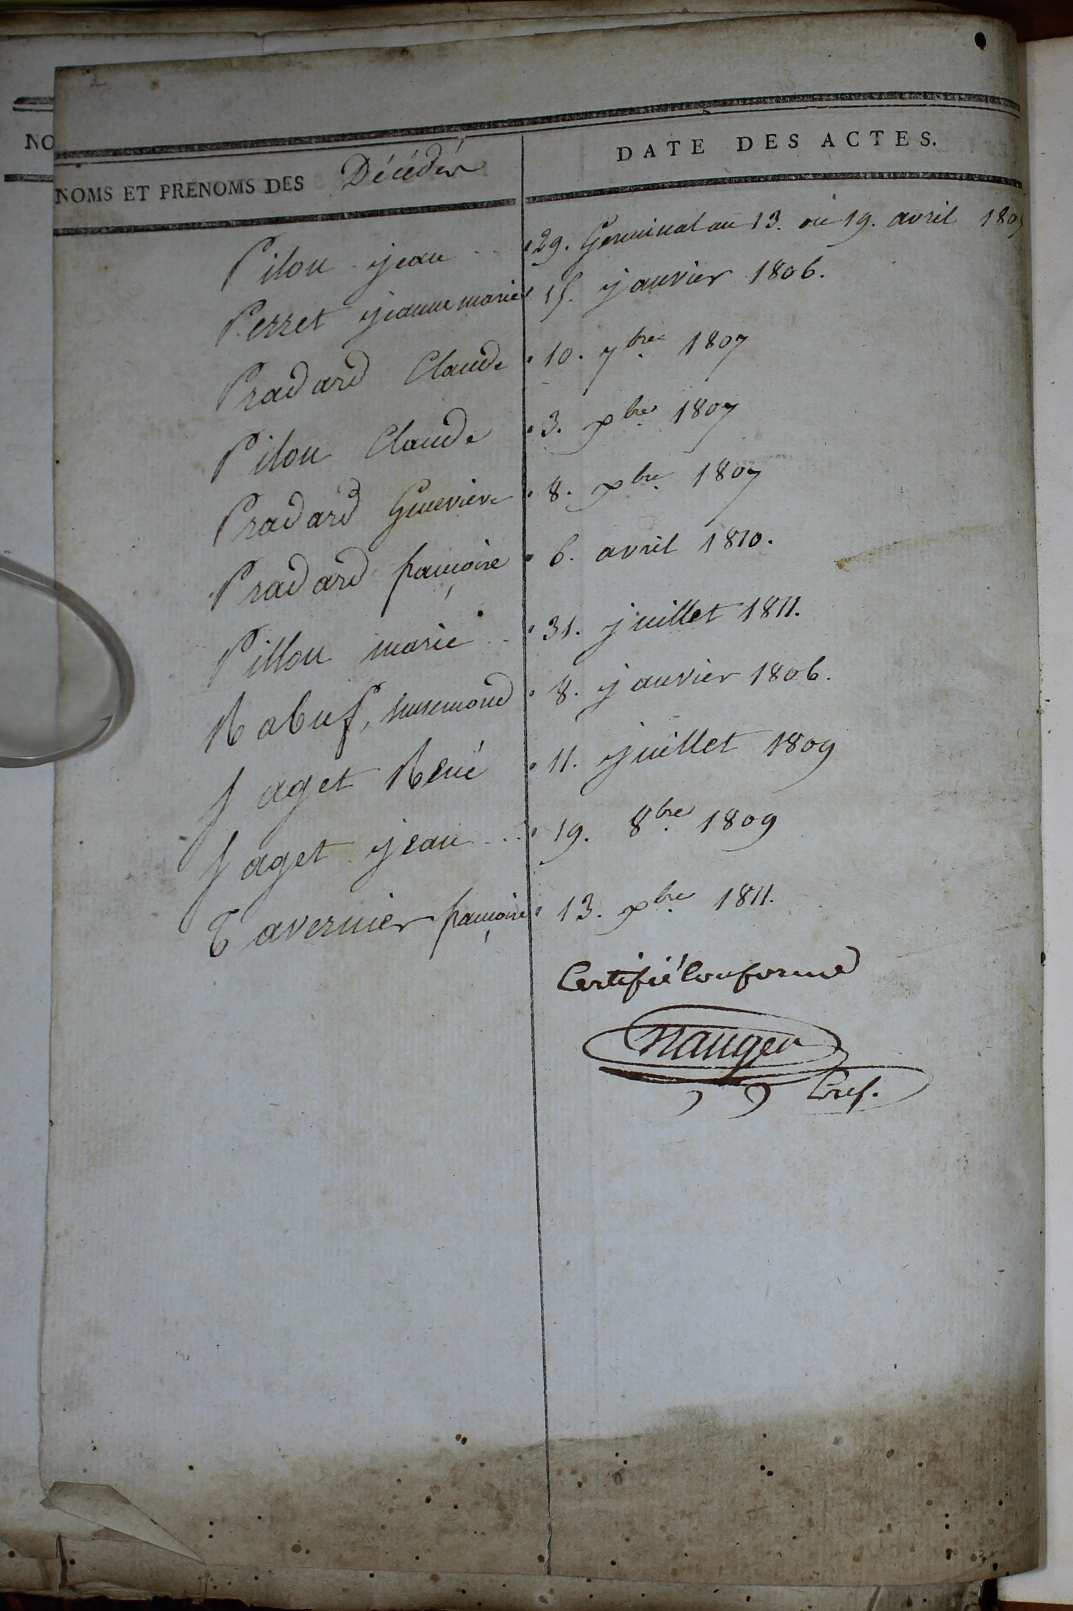 NO
DATE DES ACTES.
NOMS ET PRENOMS DES Décédés
Pilon jean .. 29. Germinal an 13. ou 19. avril 180
Perret jeanne marie 15. janvier 1806.
Pradard Claude 10. 7bre 1807
Pilon Claude 3. xbre 1807
Pradard Genevieve 8. xbre 1807
Pradard françoise 6. avril 1810.
Pillon marie 31. juillet 1811.
Rabuf, 8. janvier 1806.
Saget René 11. juillet 1809
Saget jean ... 19. 8bre 1809
Tavernier françoise 13. xbre 1811.
Certifié Conforme